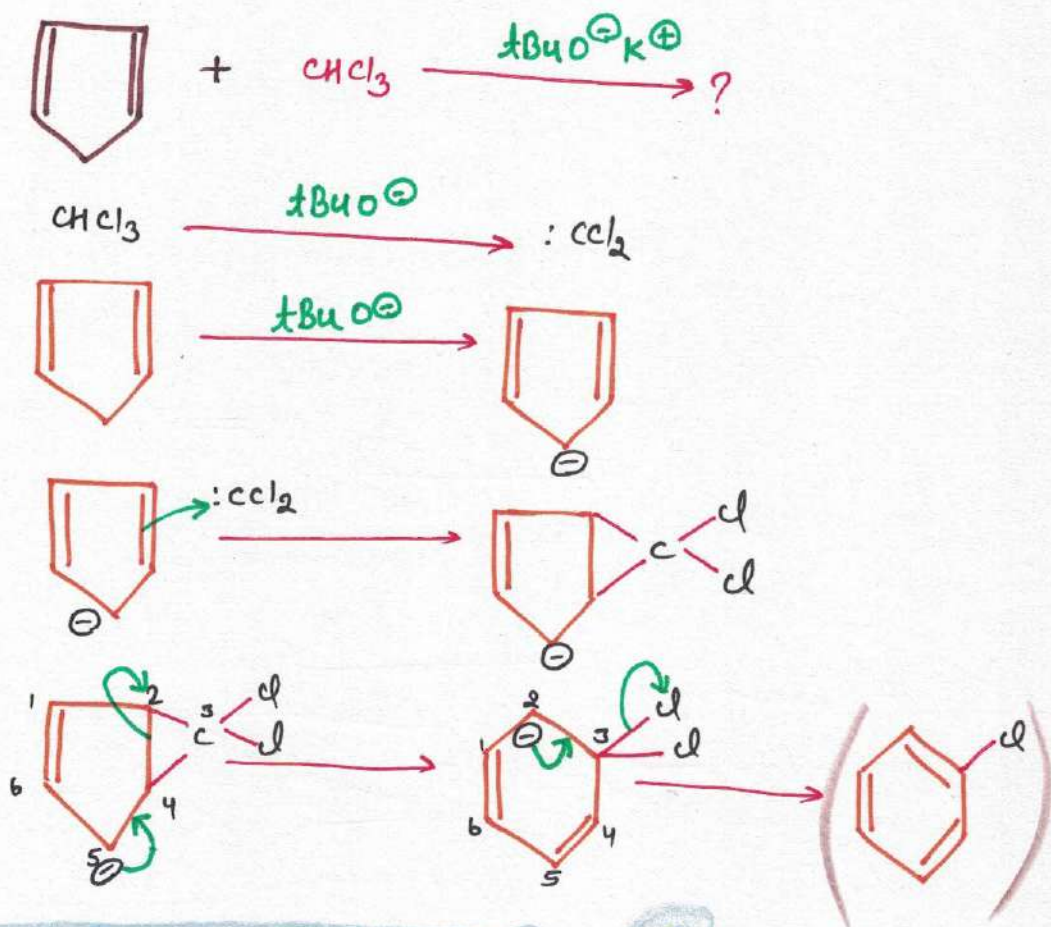 + CHCl3 tBuO⊖K⊕ ?
CHCl3 tBuO⊖ :CCl2
tBuO⊖
⊖
:CCl2 C Cl Cl
⊖ ⊖
1 2 3 C Cl Cl 6 4 5 ⊖ 2 ⊖ 1 3 Cl Cl 6 4 5 Cl